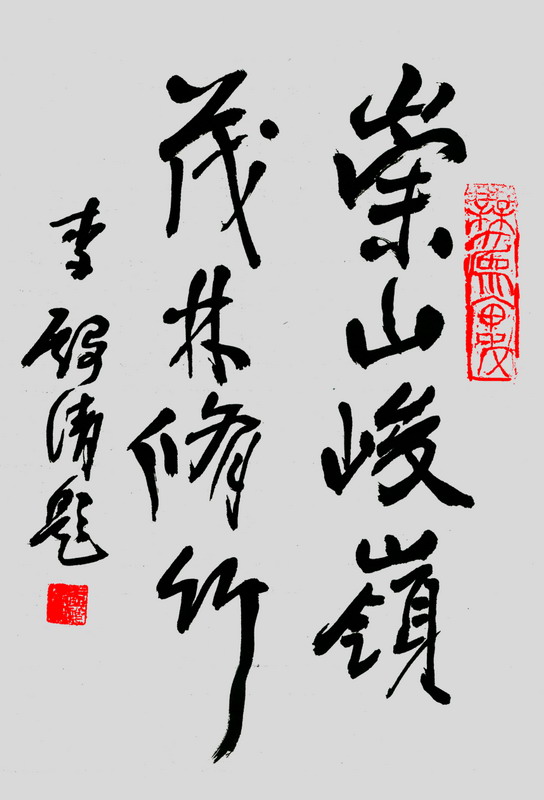 崇山峻嶺
茂林脩竹
李殿清題